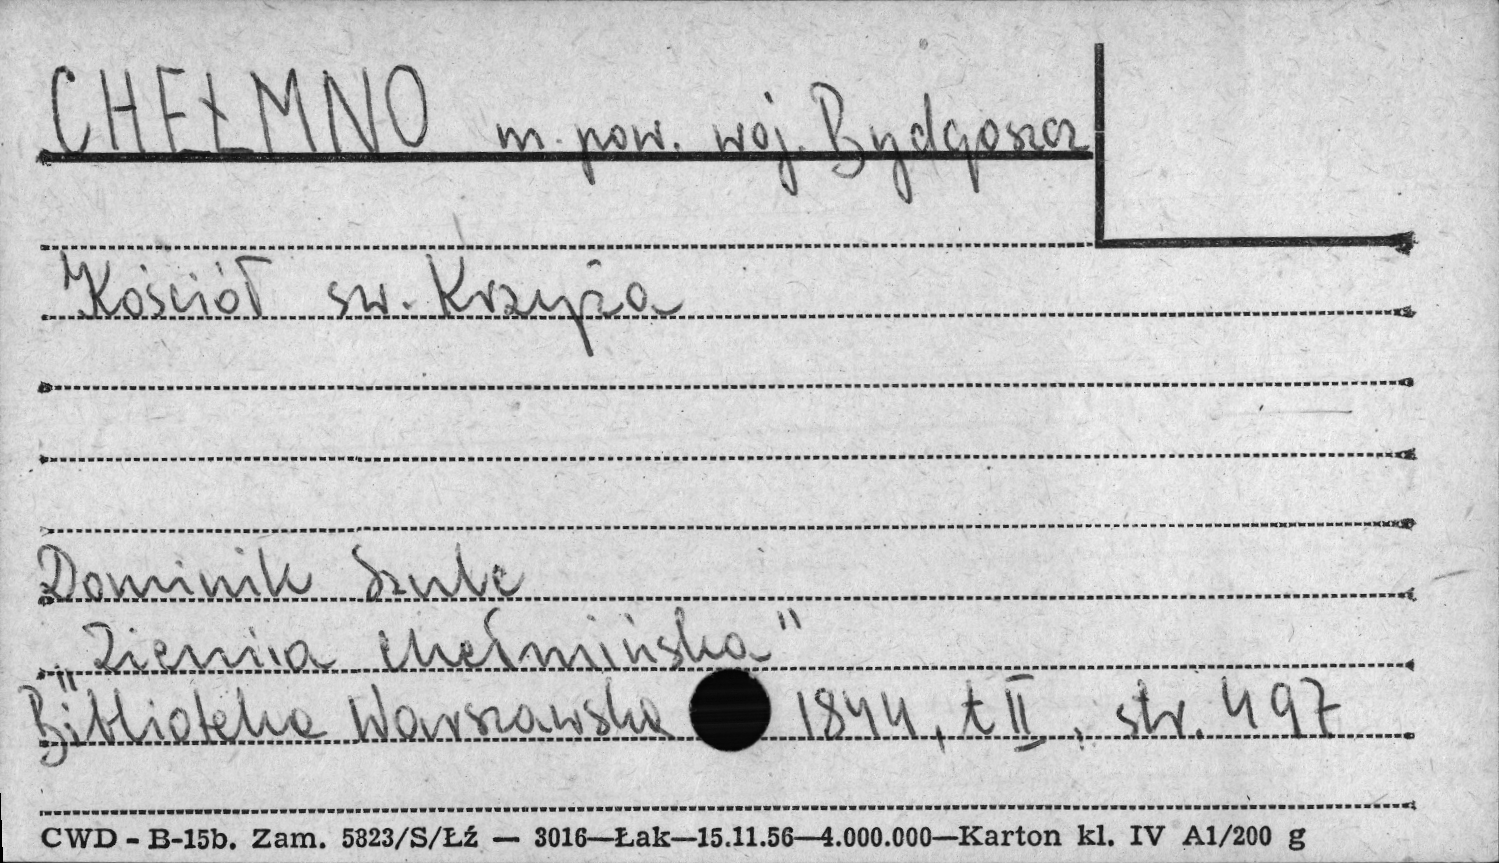 CHEŁMNO m. pow. woj. Bydgoszcz
Kościół sw. Krzyża
Dominik Szulc
„Ziemia chełmińska"
Biblioteka Warszawska 1844, t II, str. 497
CWD - B-15b. Zam. 5823/S/Łź — 3016—Łak—15.11.56—4.000.000—Karton kl. IV A1/200 g